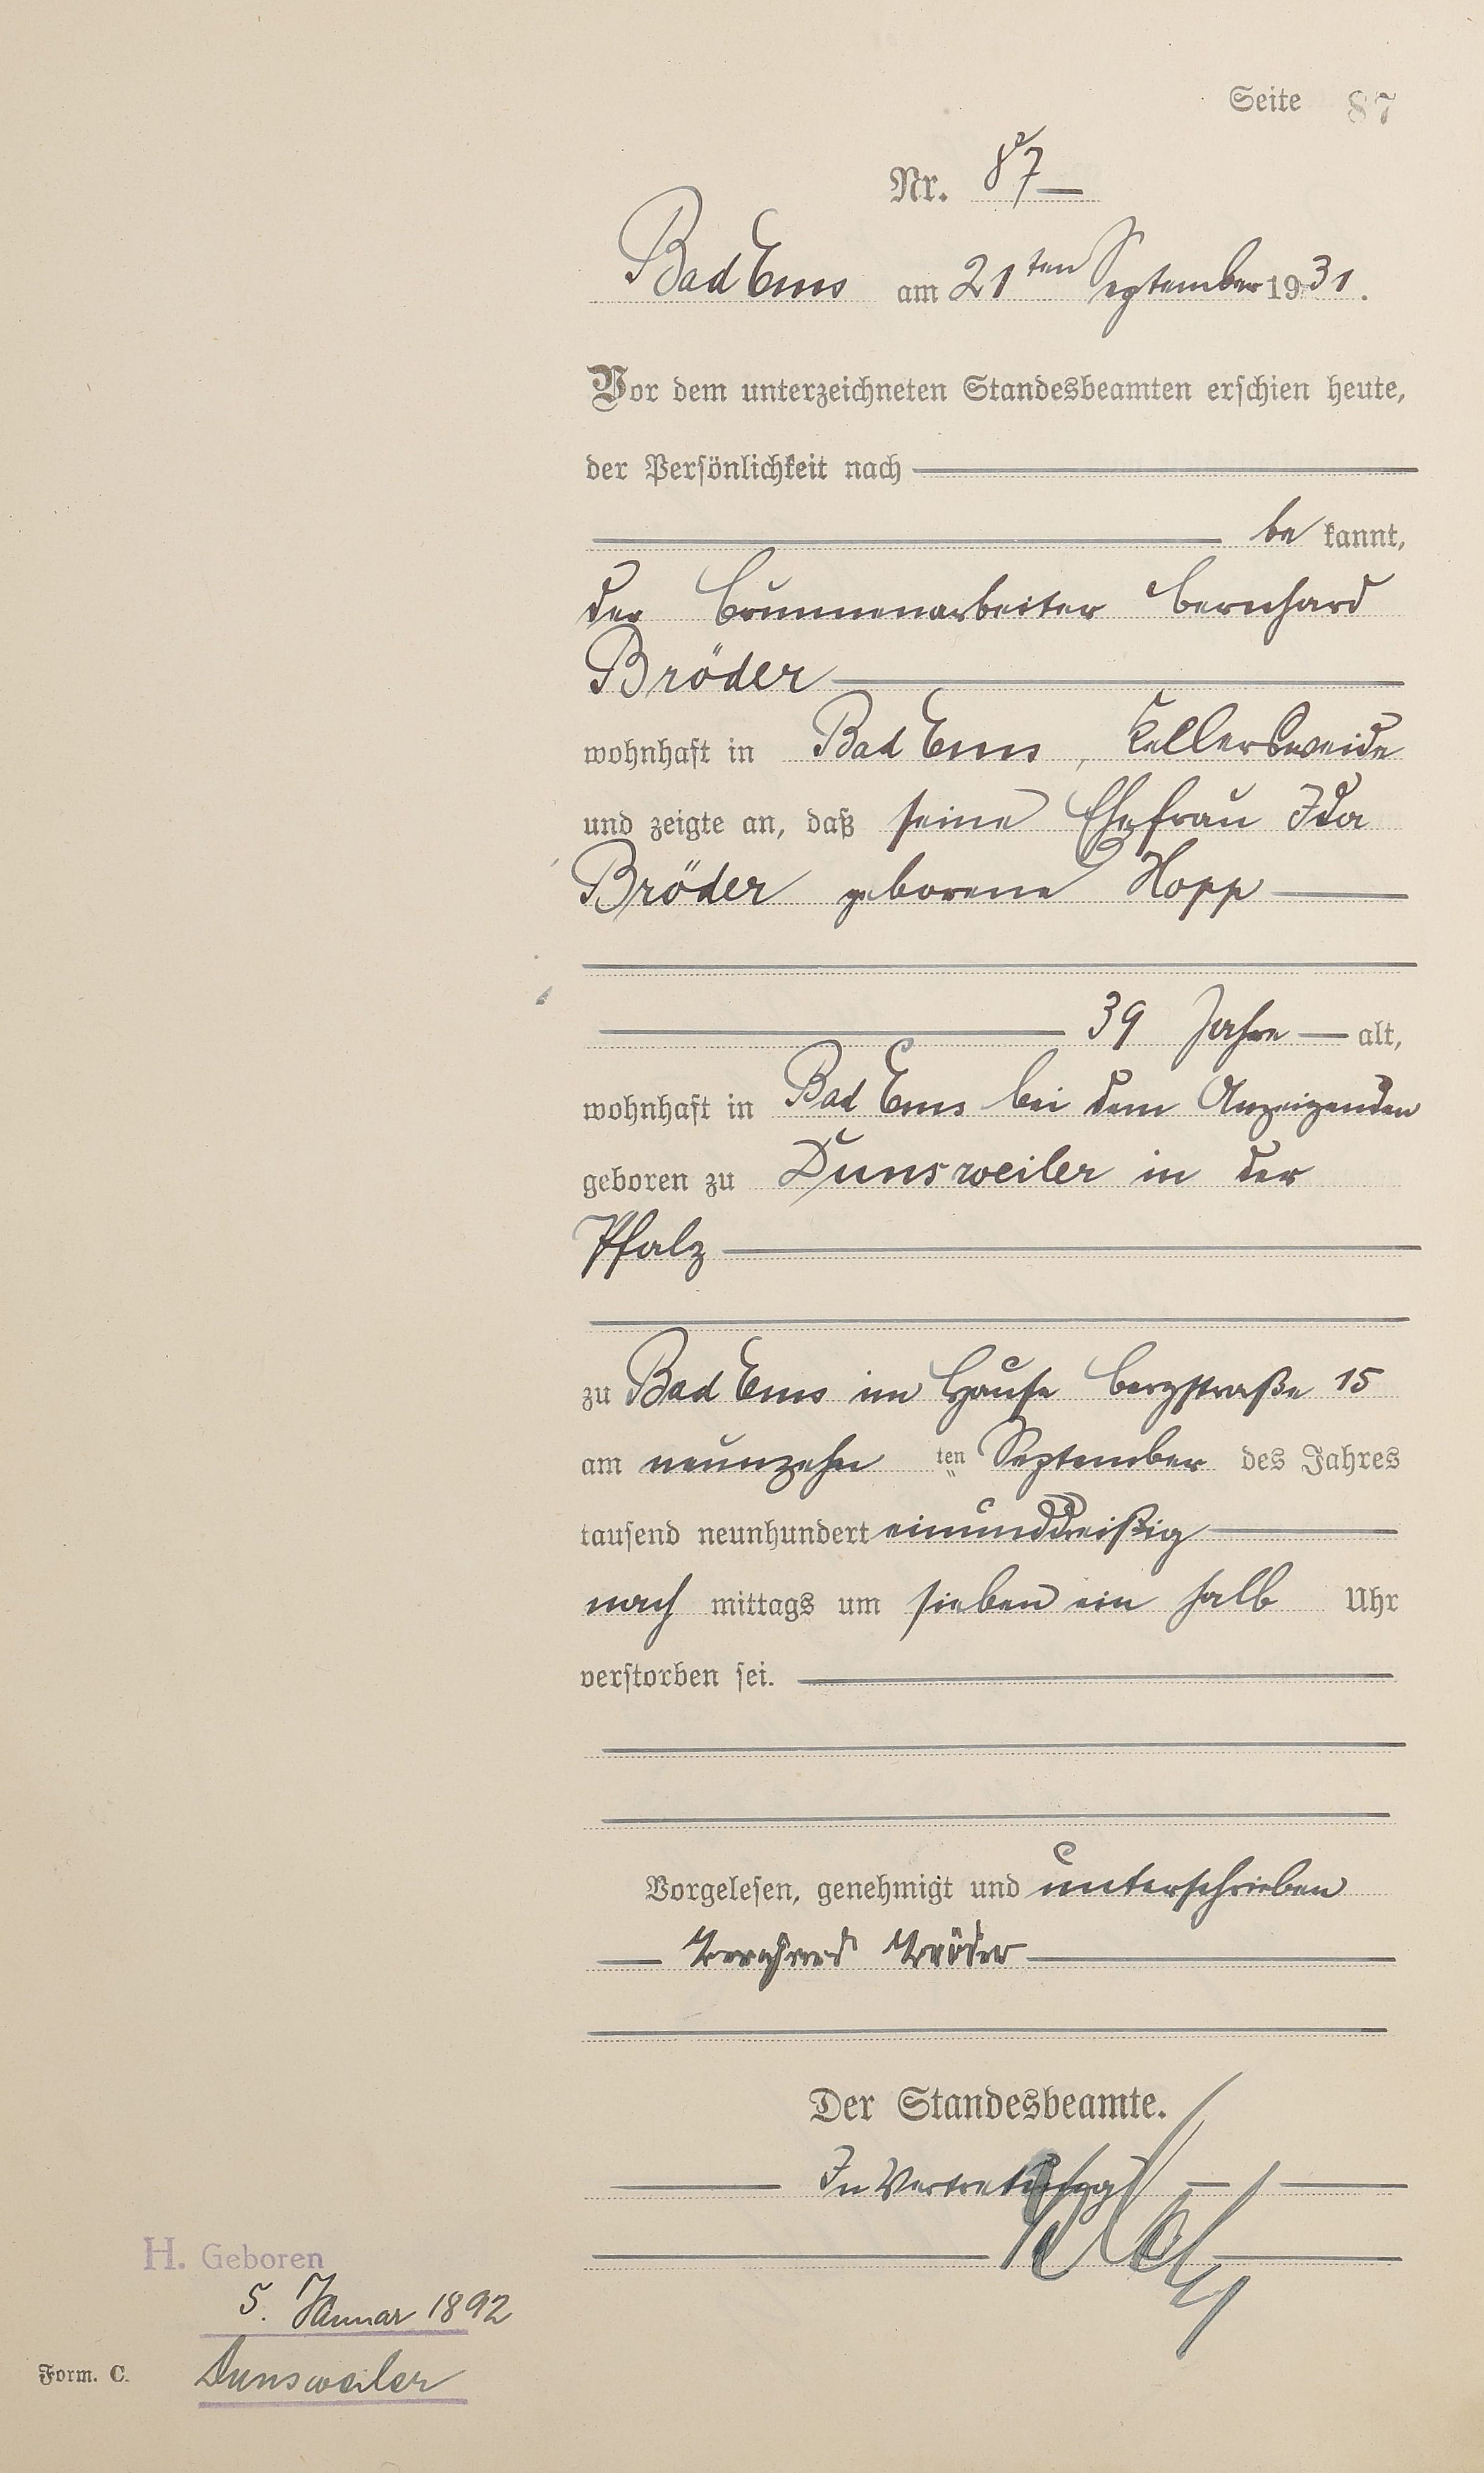 Seite 87
Nr. 87
Bad Ems am 21ten September 1931.
Vor dem unterzeichneten Standesbeamten erschien heute,
der Persönlichkeit nach
be kannt,
der Brunnenarbeiter Bernhard
Bröder
wohnhaft in Bad Ems, Kellersweide
und zeigte an, daß seine Ehefrau Ida
Bröder geborene Hopp
39 Jahre alt,
wohnhaft in Bad Ems bei dem Anzeigenden
geboren zu Dunsweiler in der
Pfalz
zu Bad Ems im Hause Bergstraße 15
am neunzehn ten September des Jahres
tausend neunhundert einunddreißig
nach mittags um sieben ein halb Uhr
verstorben sei.
Vorgelesen, genehmigt und unterschrieben
Bernhard Bröder
Der Standesbeamte.
In Vertretung
H. Geboren
5. Januar 1892
Dunsweiler
Form. C.